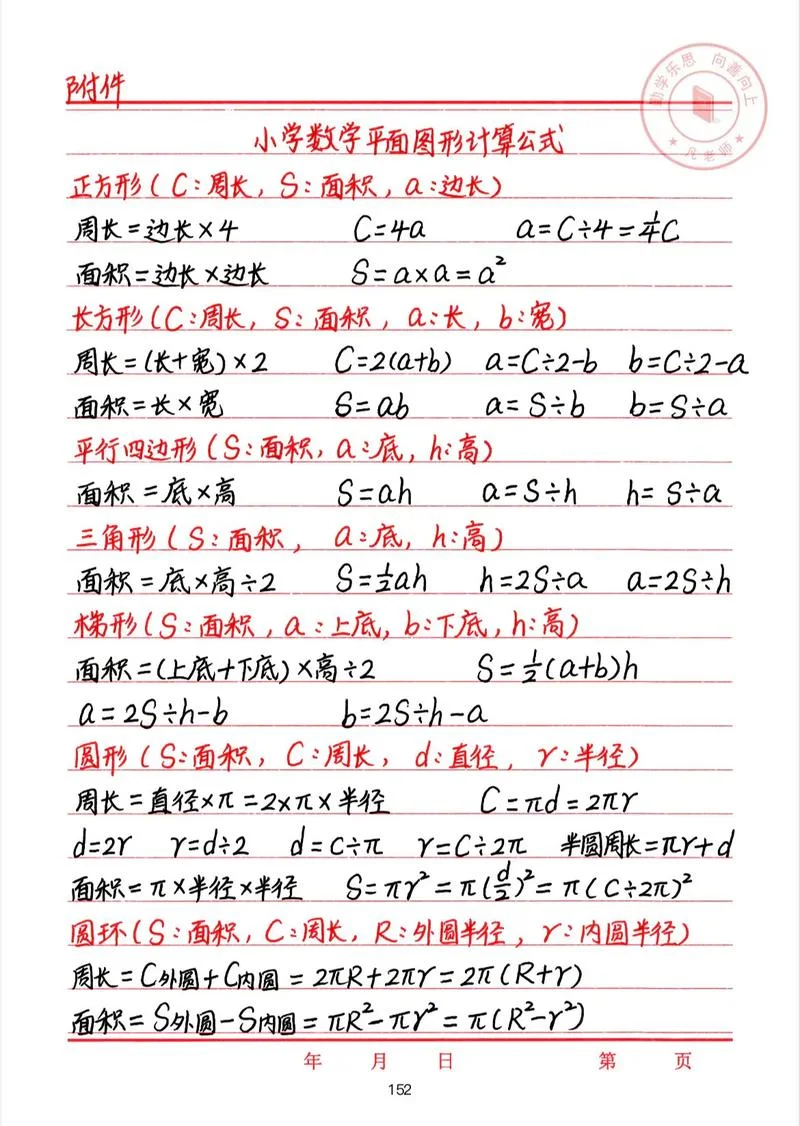 附件
勤学乐思 向善向上
凡老师
小学数学平面图形计算公式
正方形(C:周长,S:面积,a:边长)
周长=边长×4 C=4a a=C÷4=¼C
面积=边长×边长 S=a×a=a²
长方形(C:周长,S:面积,a:长,b:宽)
周长=(长+宽)×2 C=2(a+b) a=C÷2-b b=C÷2-a
面积=长×宽 S=ab a=S÷b b=S÷a
平行四边形(S:面积,a:底,h:高)
面积=底×高 S=ah a=S÷h h=S÷a
三角形(S:面积,a:底,h:高)
面积=底×高÷2 S=½ah h=2S÷a a=2S÷h
梯形(S:面积,a:上底,b:下底,h:高)
面积=(上底+下底)×高÷2 S=½(a+b)h
a=2S÷h-b b=2S÷h-a
圆形(S:面积,C:周长,d:直径,r:半径)
周长=直径×π=2×π×半径 C=πd=2πr
d=2r r=d÷2 d=C÷π r=C÷2π 半圆周长=πr+d
面积=π×半径×半径 S=πr²=π(d/2)²=π(C÷2π)²
圆环(S:面积,C:周长,R:外圆半径,r:内圆半径)
周长=C外圆+C内圆=2πR+2πr=2π(R+r)
面积=S外圆-S内圆=πR²-πr²=π(R²-r²)
年 月 日 第 页
152